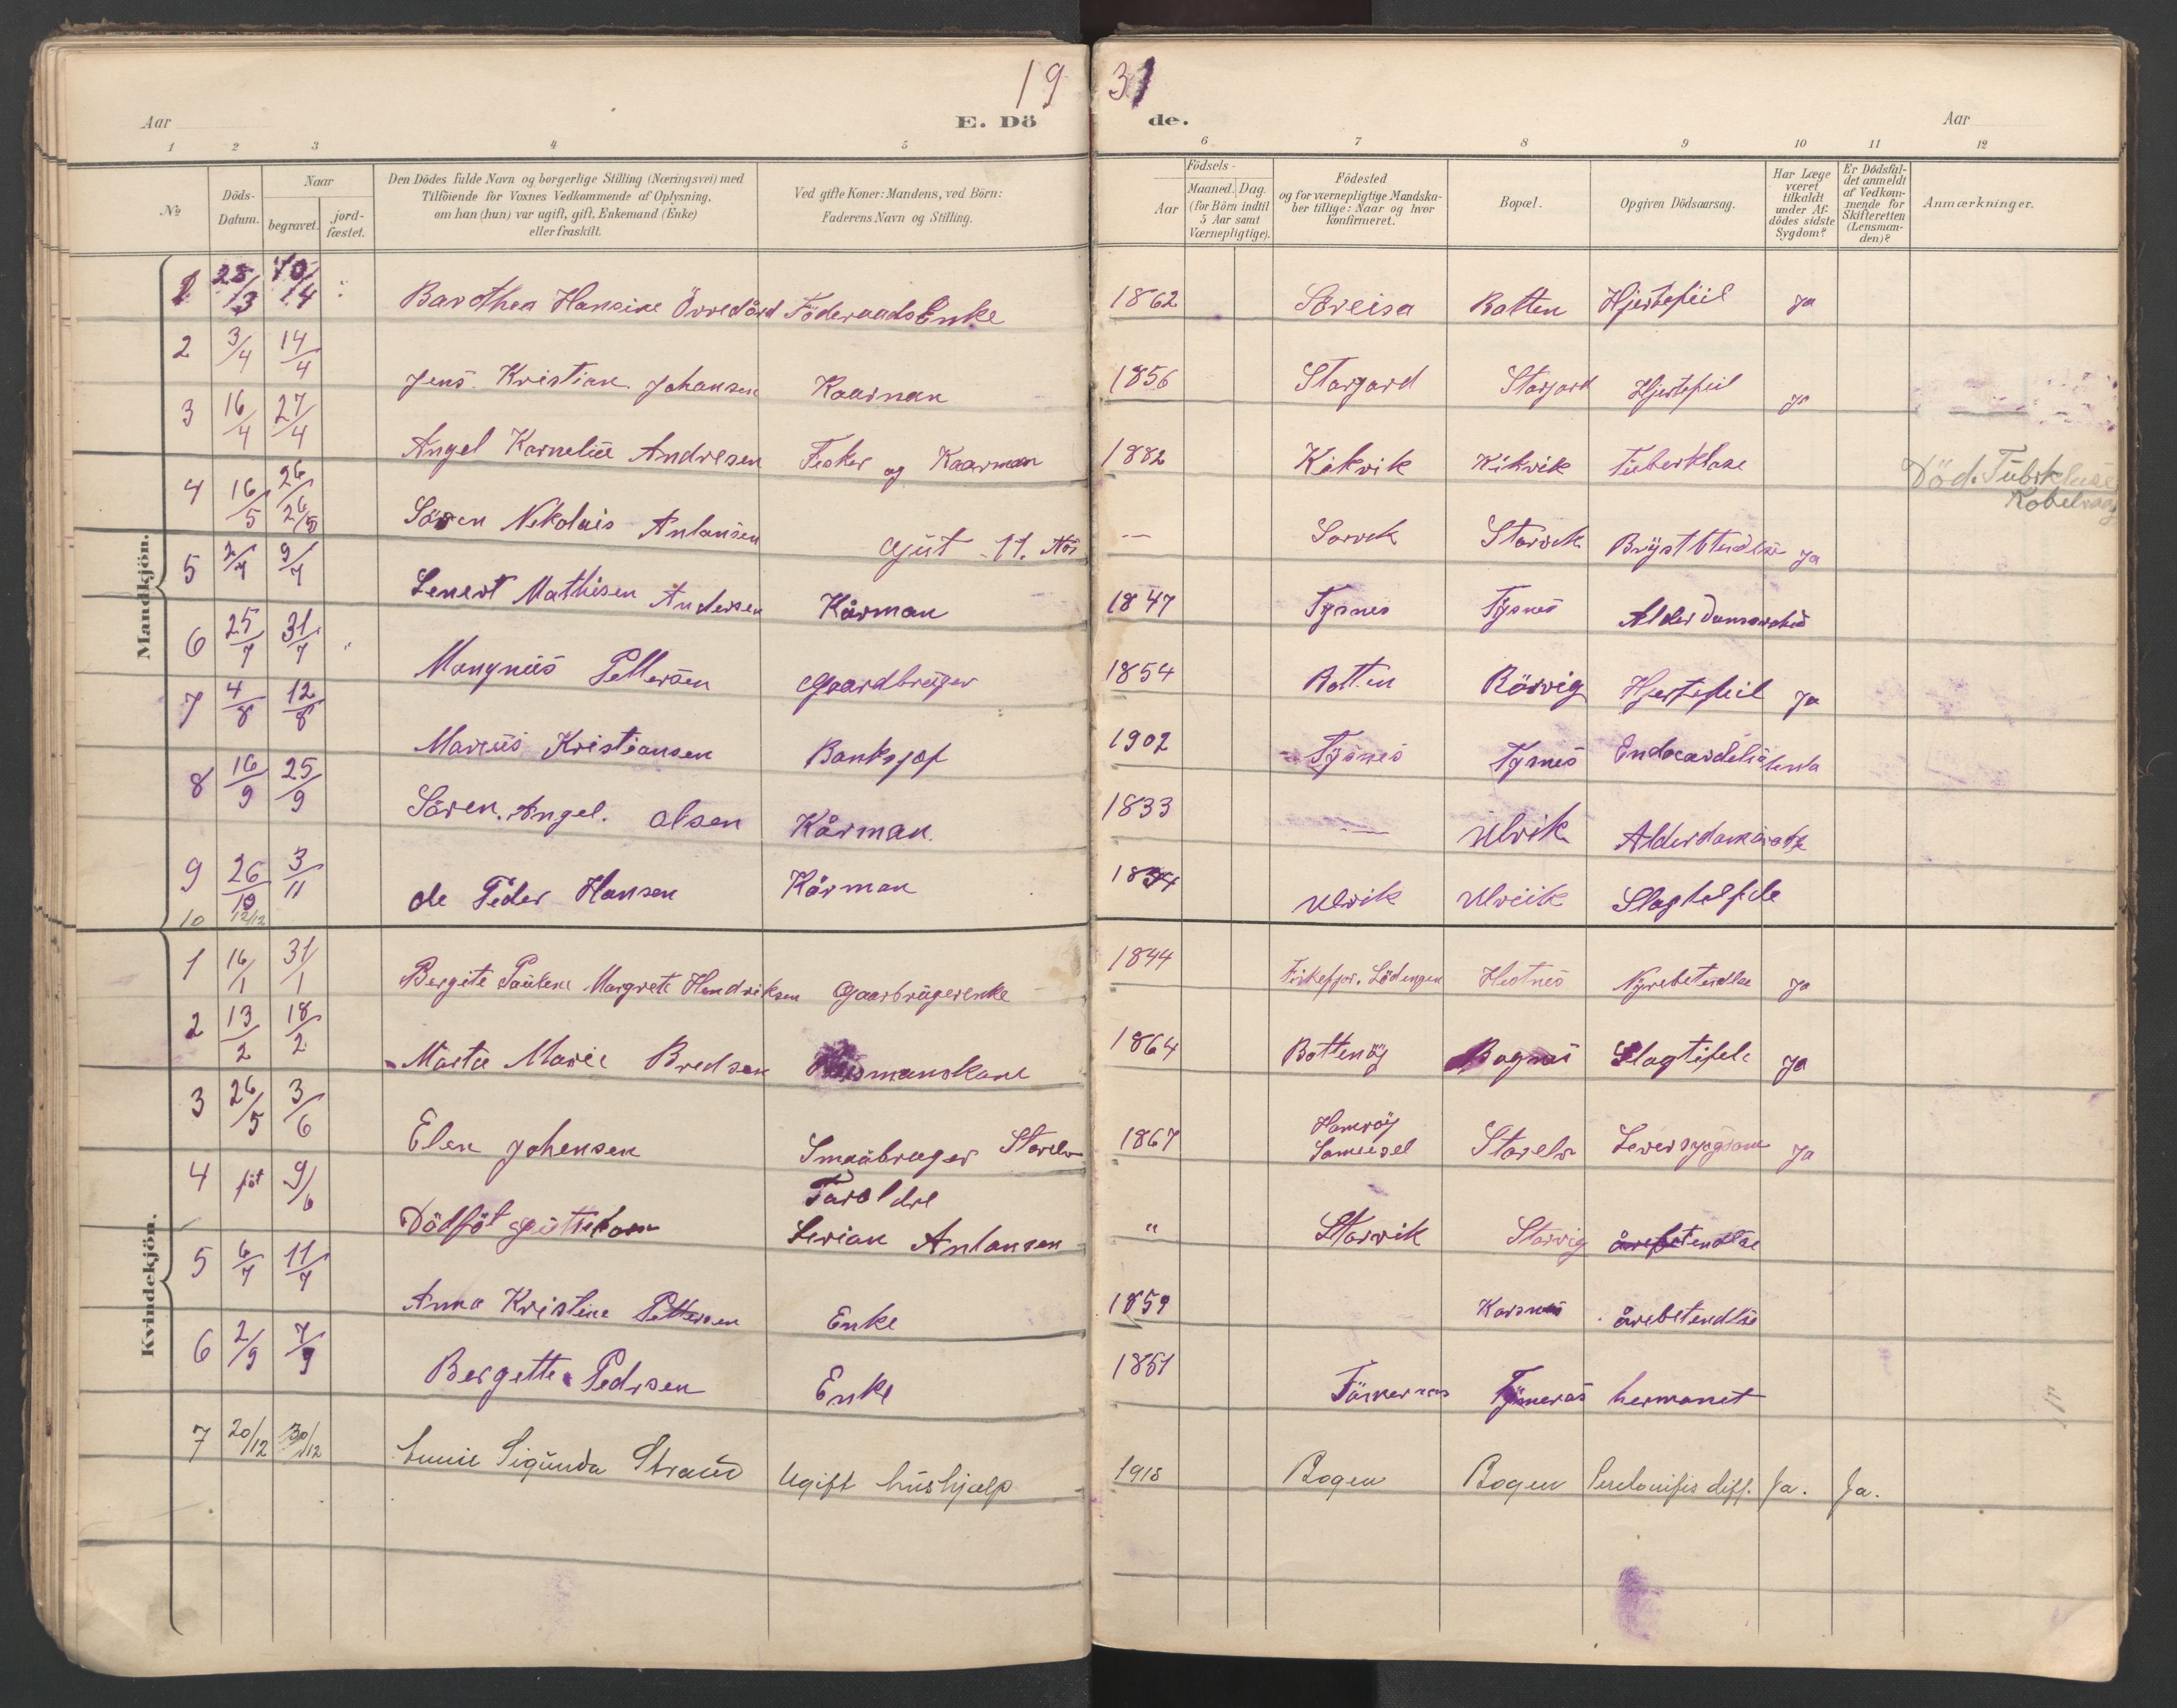 19 31
Aar E. Döde. Aar
1 2 3 4 5 6 7 8 9 10 11 12
№
Döds-Datum.
Naar
begravet.
jord-fæstet.
Den Dödes fulde Navn og borgerlige Stilling (Næringsvei) med
Tilföiende for Voxnes Vedkommende af Oplysning,
om han (hun) var ugift, gift, Enkemand (Enke)
eller fraskilt.
Ved gifte Koner: Mandens, ved Börn:
Faderens Navn og Stilling.
Födsels-
Aar
Maaned. Dag.
(for Börn indtil
5 Aar samt
Værnepligtige).
Födested
og for værnepligtige Mandska-
ber tillige: Naar og hvor
konfirmeret.
Bopæl.
Opgiven Dödsaarsag.
Har Læge
været
tilkaldt
under Af-
dödes sidste
Sygdom?
Er Dödsfal-
det anmeldt
af Vedkom-
mende for
Skifteretten
(Lensman-
den)?
Anmærkninger.
Mandkjön.
1 28/3 10/4 Barothea Hansine Föderaads Enke 1862 Söreisa Botten Hjertefeil Ja
2 3/4 14/4 Jens Kristian Johansen Kaarman 1856 Storjord Storjord Hjertefeil Ja
3 16/4 27/4 Angel Kornelius Andresen Fisker og Kaarman 1882 Kikvik Kikvik Tuberklose
Död. Tubrkluse
4 16/5 26/5 Sören Nikolais Antonsen Gut 11. — Storvik Brystbtendlse Ja
5 2/7 9/7 Lenert Mathisen Andersen Kårman 1847 Tysnes Tysnes
6 25/7 31/7 Mangnus Pettersen Gaardbruger 1854 Botten Rörvig Hjertefeil Ja
7 4/8 12/8 Marius Kristiansen Banksjef 1902 Tysnes Tysnes
8 16/9 25/9 Sören. Angel. Olsen Kårman. 1833 — Ulvik
9 26/10 3/11 Ole Peder Hansen Kårman 1834 Ulvik Ulvik
10 12/12
Kvindekjön.
1 16/1 31/1 Bergite Paulene Margrete Hendriksen Gaarbrugerenke 1844 Lödingen Hestnes Nyrebetendlse Ja
2 13/2 18/2 Marta Marie Bredsen 1864 Bottenöy Bognes Slagtifele Ja
3 26/5 3/6 Elen Johensen Smaabruger Storelv 1867 Hamröy Storelv Leversygdom Ja
4 föt 9/6 Dödföt guttebarn Foreldre
Antonsen " Storvik Storvig årebetendlse
5 6/7 11/7 Anna Kristine Pettersen Enke 1859 Korsnes årebetendlse
6 2/9 7/9 Bergette Pedrsen Enke 1851
7 20/12 30/12 Sigunda Strand Ugift hushjælp 1915 Bogen Bogen diff. Ja. Ja.